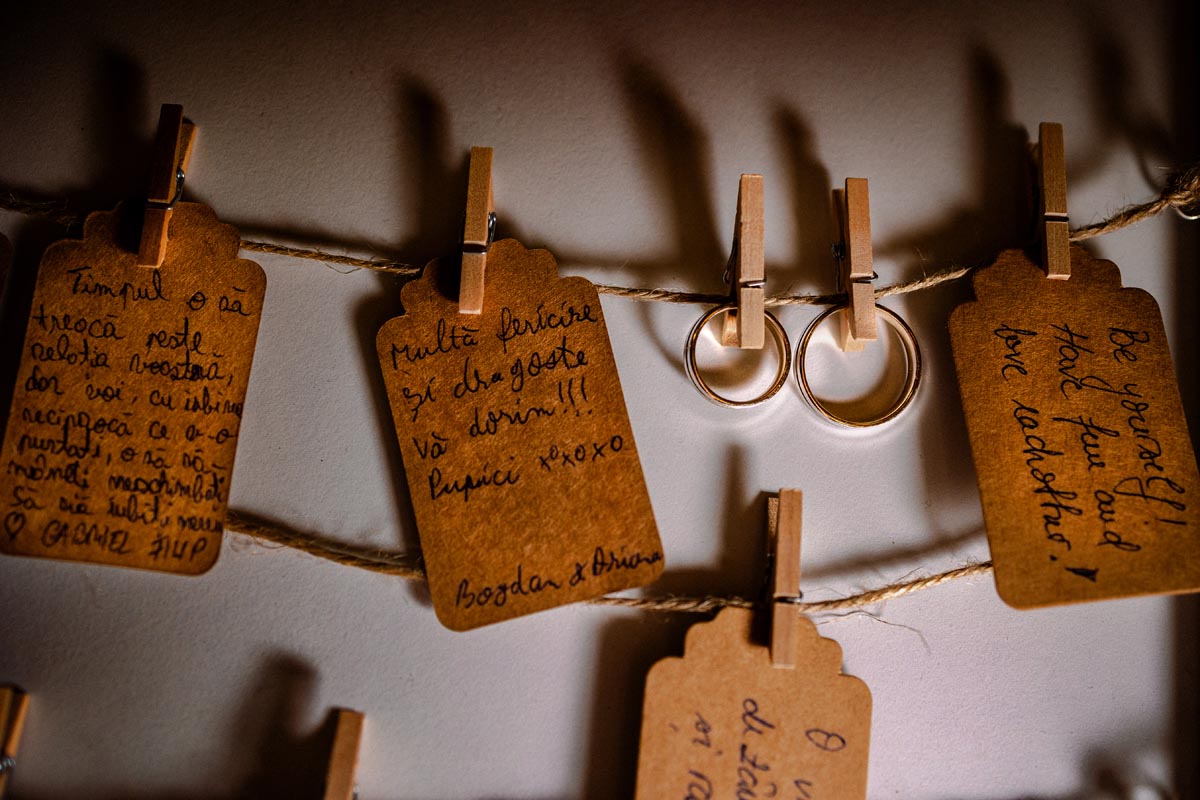 Timpul o să
treacă peste
relația voastră,
dar voi, cu iubirea
ce v-o
purtați, o să vă
Să vă iubiți mereu
♡ GABRIEL FILIP
Multă fericire
și dragoste
vă dorim!!!
Pupici xoxoxo
Bogdan & Adriana
Be yourself!
Have fun and
love eachother!
O
de
și